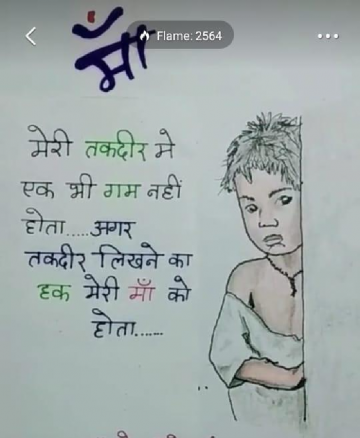 Flame: 2564
माँ
मेरी तकदीर मे
एक भी गम नहीं
होता.....अगर
तकदीर लिखने का
हक मेरी माँ को
होता......